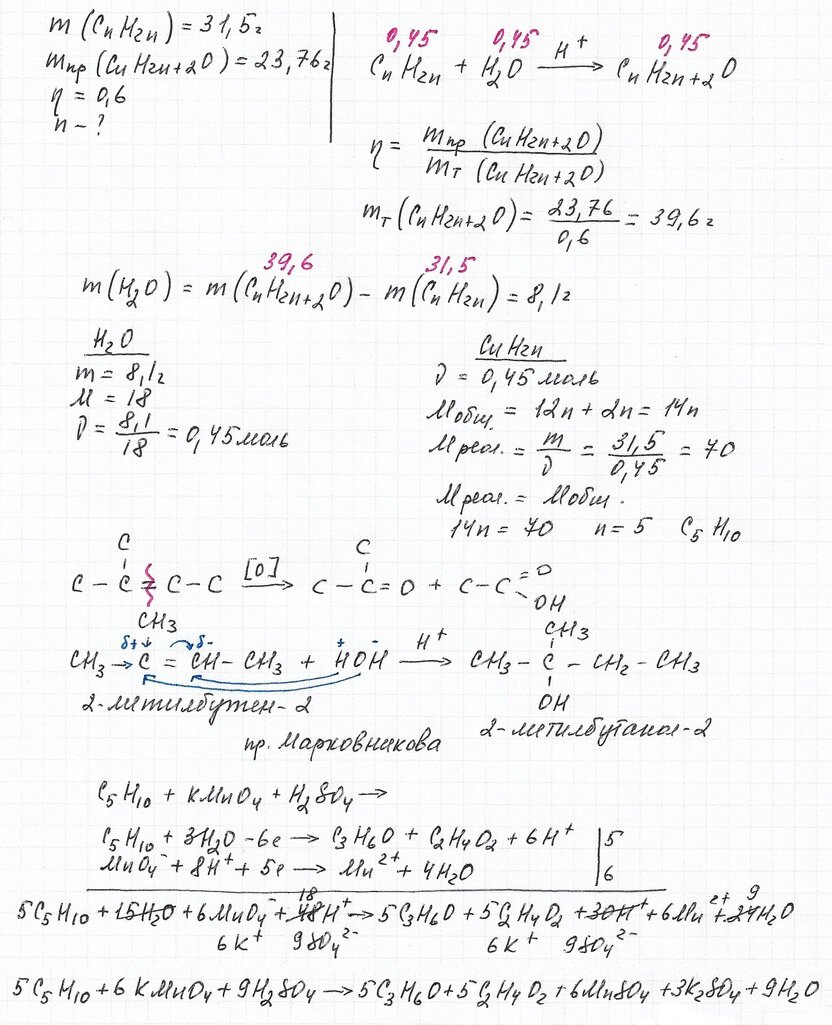 m (CnH2n) = 31,5г
mпр (CnH2n+2O) = 23,76г
η = 0,6
n - ?
0,45 0,45 0,45
CnH2n + H2O H+ → CnH2n+2O
η = mпр (CnH2n+2O) / mт (CnH2n+2O)
mт (CnH2n+2O) = 23,76 / 0,6 = 39,6г
39,6 31,5
m (H2O) = m (CnH2n+2O) - m (CnH2n) = 8,1г
H2O
m = 8,1г
M = 18
ν = 8,1 / 18 = 0,45 моль
CnH2n
ν = 0,45 моль
Mобщ. = 12n + 2n = 14n
Mреал. = m / ν = 31,5 / 0,45 = 70
Mреал. = Mобщ.
14n = 70 n = 5 C5H10
C C
C - C = C - C [O] → C - C = O + C - C = O
OH
CH3 CH3
δ+ δ- + - H+
CH3 → C = CH - CH3 + HOH → CH3 - C - CH2 - CH3
OH
2-метилбутен-2 2-метилбутанол-2
пр. Марковникова
C5H10 + KMnO4 + H2SO4 →
C5H10 + 3H2O - 6e → C3H6O + C2H4O2 + 6H+ | 5
MnO4- + 8H+ + 5e → Mn2+ + 4H2O | 6
18 9
5C5H10 + 15H2O + 6MnO4- + 48H+ → 5C3H6O + 5C2H4O2 + 30H+ + 6Mn2+ + 24H2O
6K+ 9SO42- 6K+ 9SO42-
5C5H10 + 6KMnO4 + 9H2SO4 → 5C3H6O + 5C2H4O2 + 6MnSO4 + 3K2SO4 + 9H2O